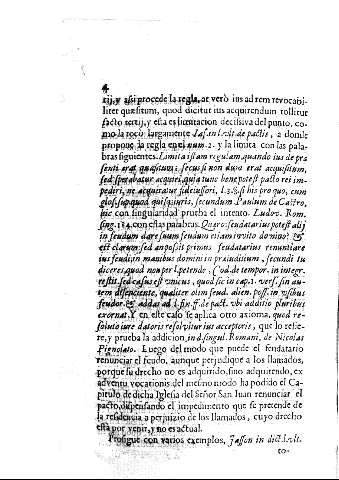 4
rij, y assi procede la regla, at verò ius ad rem revocabi-
liter quæsitum, quod dicitur ius acquirendum tollitur
facto tertij, y esta es limitacion decisiva del punto, co-
mo la tocò largamente Jas. in l. vlt. de pactis, a donde
propone la regla en el num. 2. y la limita con las pala-
bras siguientes. Limita istam regulam, quando ius de præ
senti erat quæsitum; secus si non dum erat acquisitum,
sed sperabatur acquiri, quia tunc bene potest pacto rei im-
pediri, ne acquiratur fideiussori, l. 3. ff. si his pro quo, cum
glos. sup. quod quisq. iuris, secundum Paulum de Castro,
hic con singularidad prueba el intento. Ludov. Rom.
sing. 134. con estas palabras. Quero: feudatarius potest alij
in feudum dare suum feudum etiam invito domino? &
est clarum; sed an possit primus feudatarius renuntiare
ius feudi in manibus domini in præiuditium, secundi tu
diceres, quod non per l. petende, C. vd de tempor. in integr.
restit. sed casus est vnicus, quod sic in cap. 1. vers. sin au-
tem disenciente, qualiter olim feud. alien. poss. in vsibus
feudor. & addas ad l. fin. ff. de pact. vbi additio pluribus
exornat. Y en este caso se aplica otro axioma. quod re-
soluto iure datoris resolvitur ius acceptoris, que lo refie-
re, y prueba la addicion, in d. singul. Romani, de Nicolas
Pignolato. Luego del modo que puede el feudatario
renunciar el feudo, aunque perjudique a los llamados,
porque su drecho no es adquirido, sino adquirendo, ex
adventu vocationis, del mesmo modo ha podido el Ca-
pitulo de dicha Iglesia del Señor San Iuan renunciar el
pacto, dispensando el impedimento que se pretende de
la residencia a perjuizio de los llamados, cuyo drecho
està por venir, y no es actual.
Prosigue con varios exemplos, Jasson in dict. l. vlt.
to-